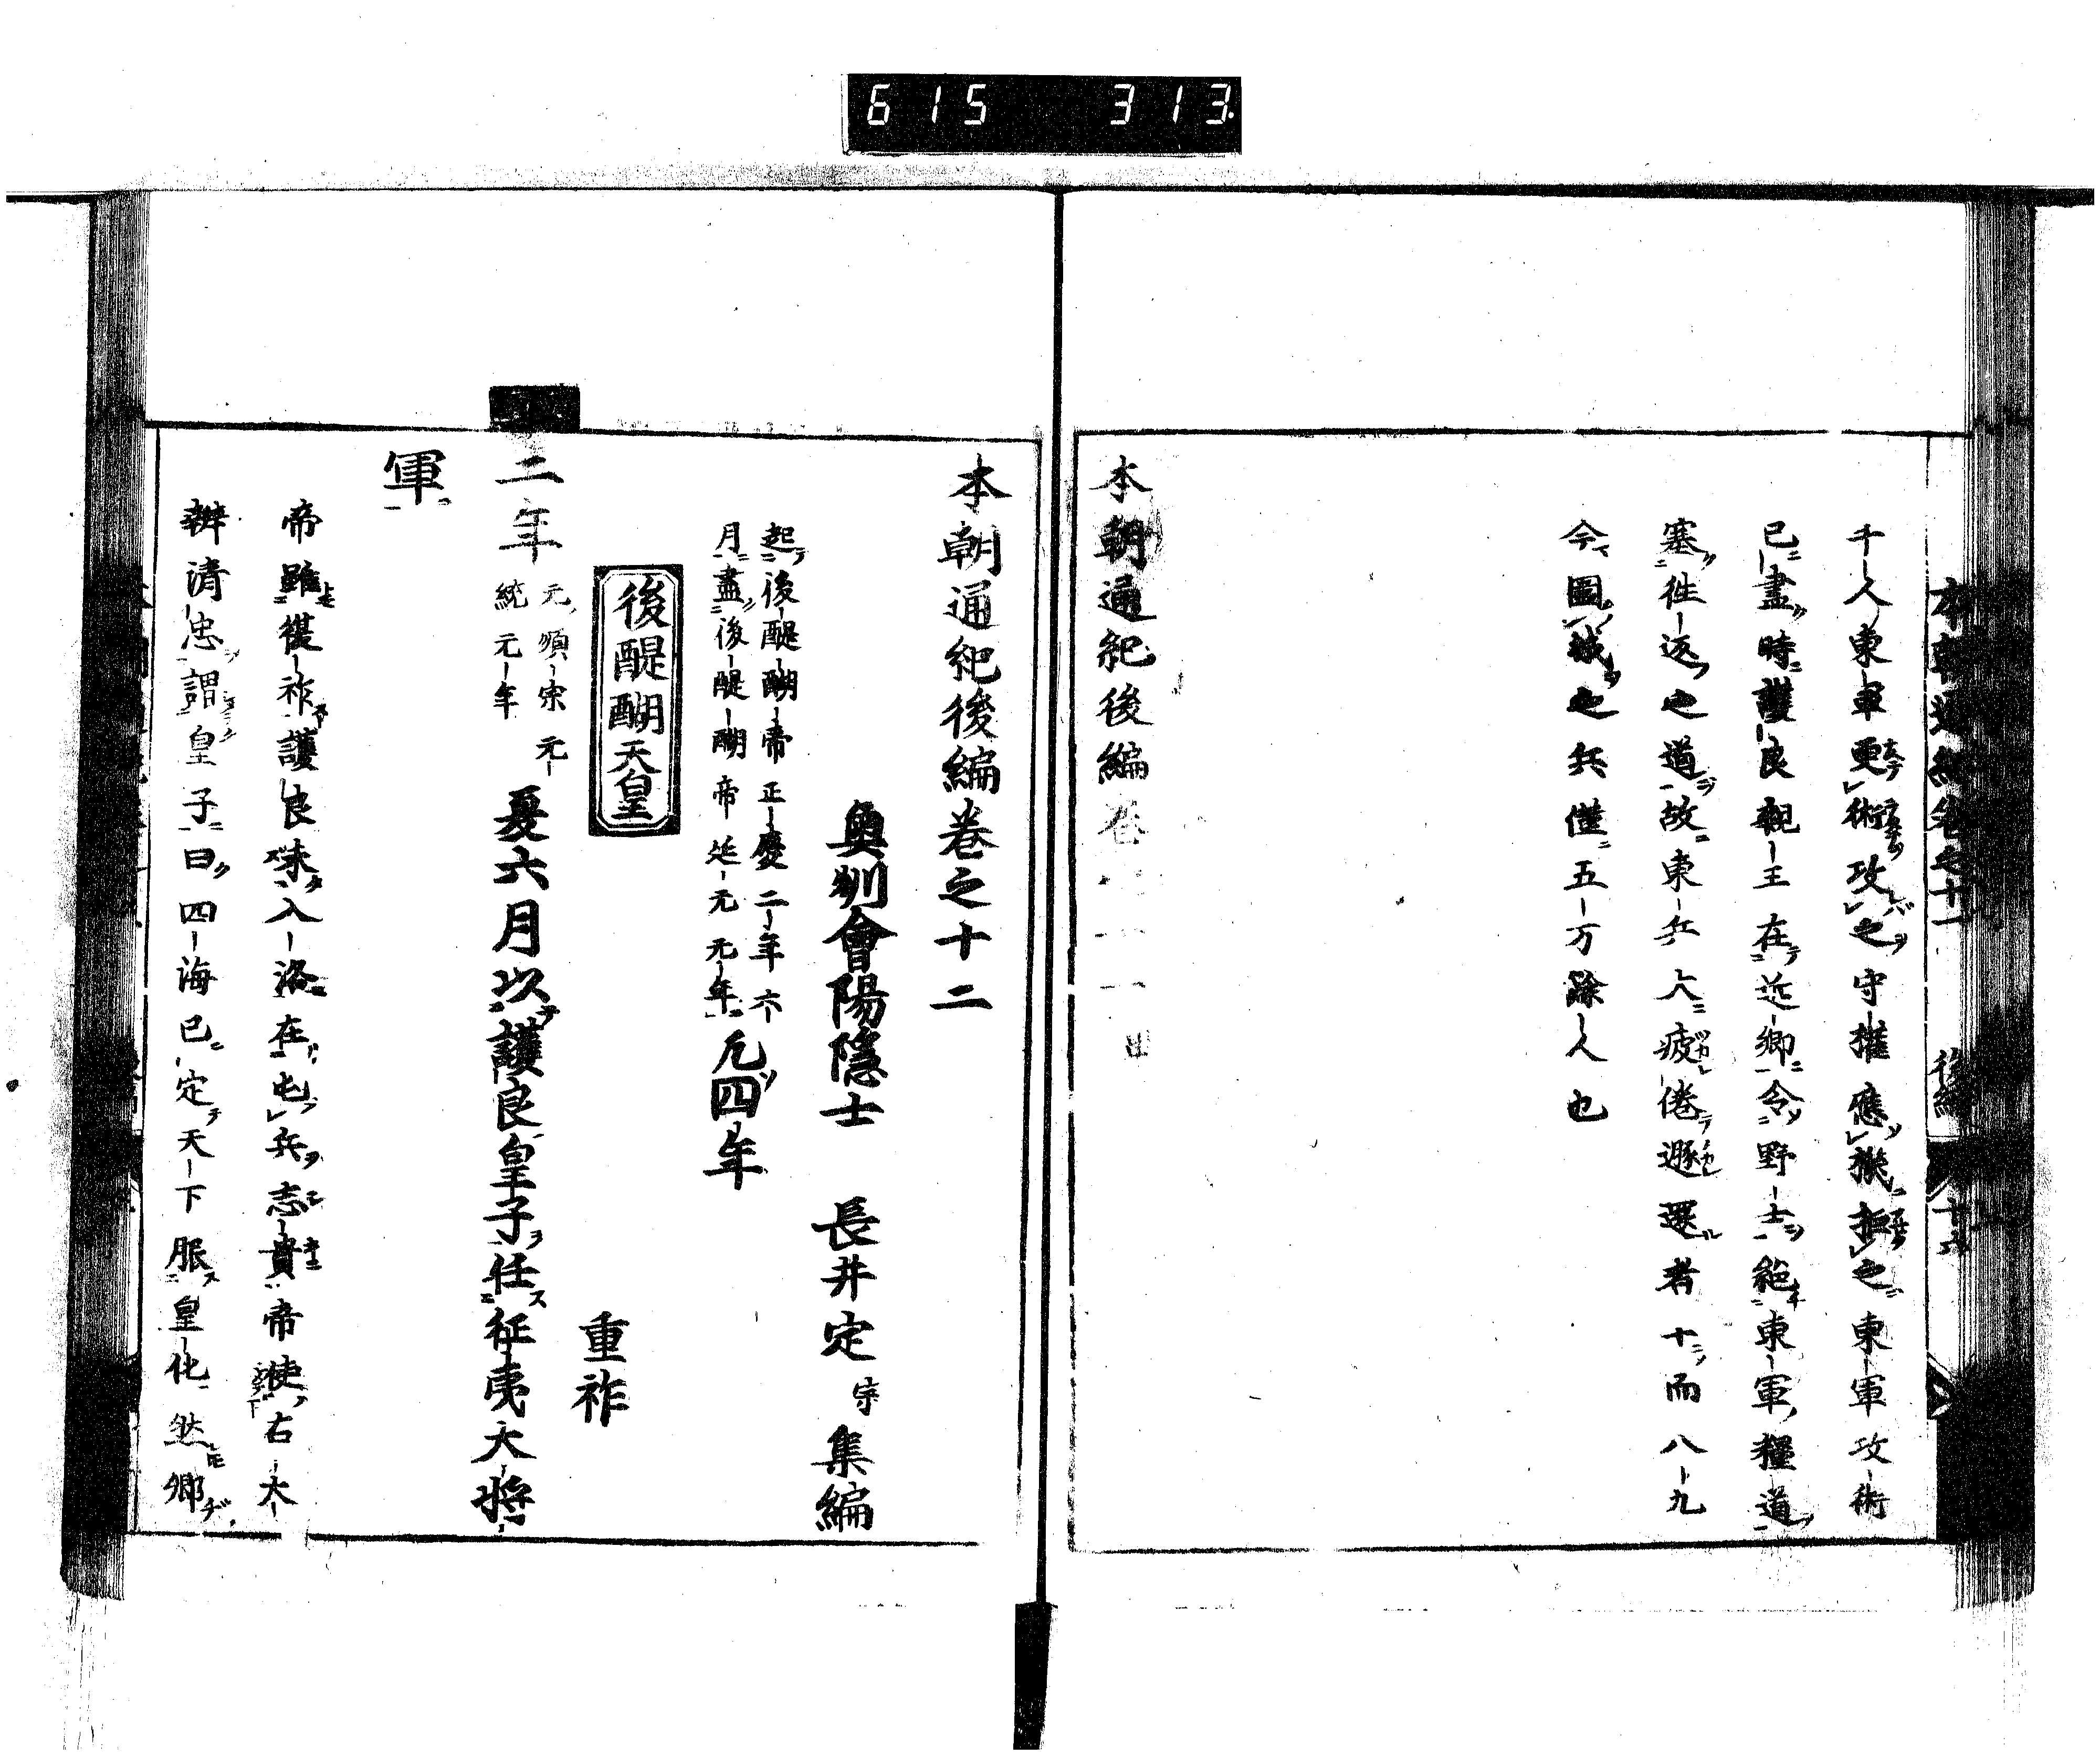 615 313
千人東軍更術攻之守權應機拒之東軍攻術
已盡時護良親王在近郷令野士絶東軍糧道
塞徃返之道故東兵大疲倦遯還者十而八九
今圍城之兵僅五万餘人也
本朝通紀後編卷
本朝通紀後編卷之十二
奥州會陽隱士 長井定宗集編
起後醍醐帝正慶二年六
月盡後醍醐帝延元元年凡四年
後醍醐天皇
重祚
二年元順宗元統元年夏六月以護良皇子任征夷大將
軍
帝雖復祚護良未入洛在屯兵志貴帝使右大
辨清忠謂皇子曰四海已定天下服皇化然郷